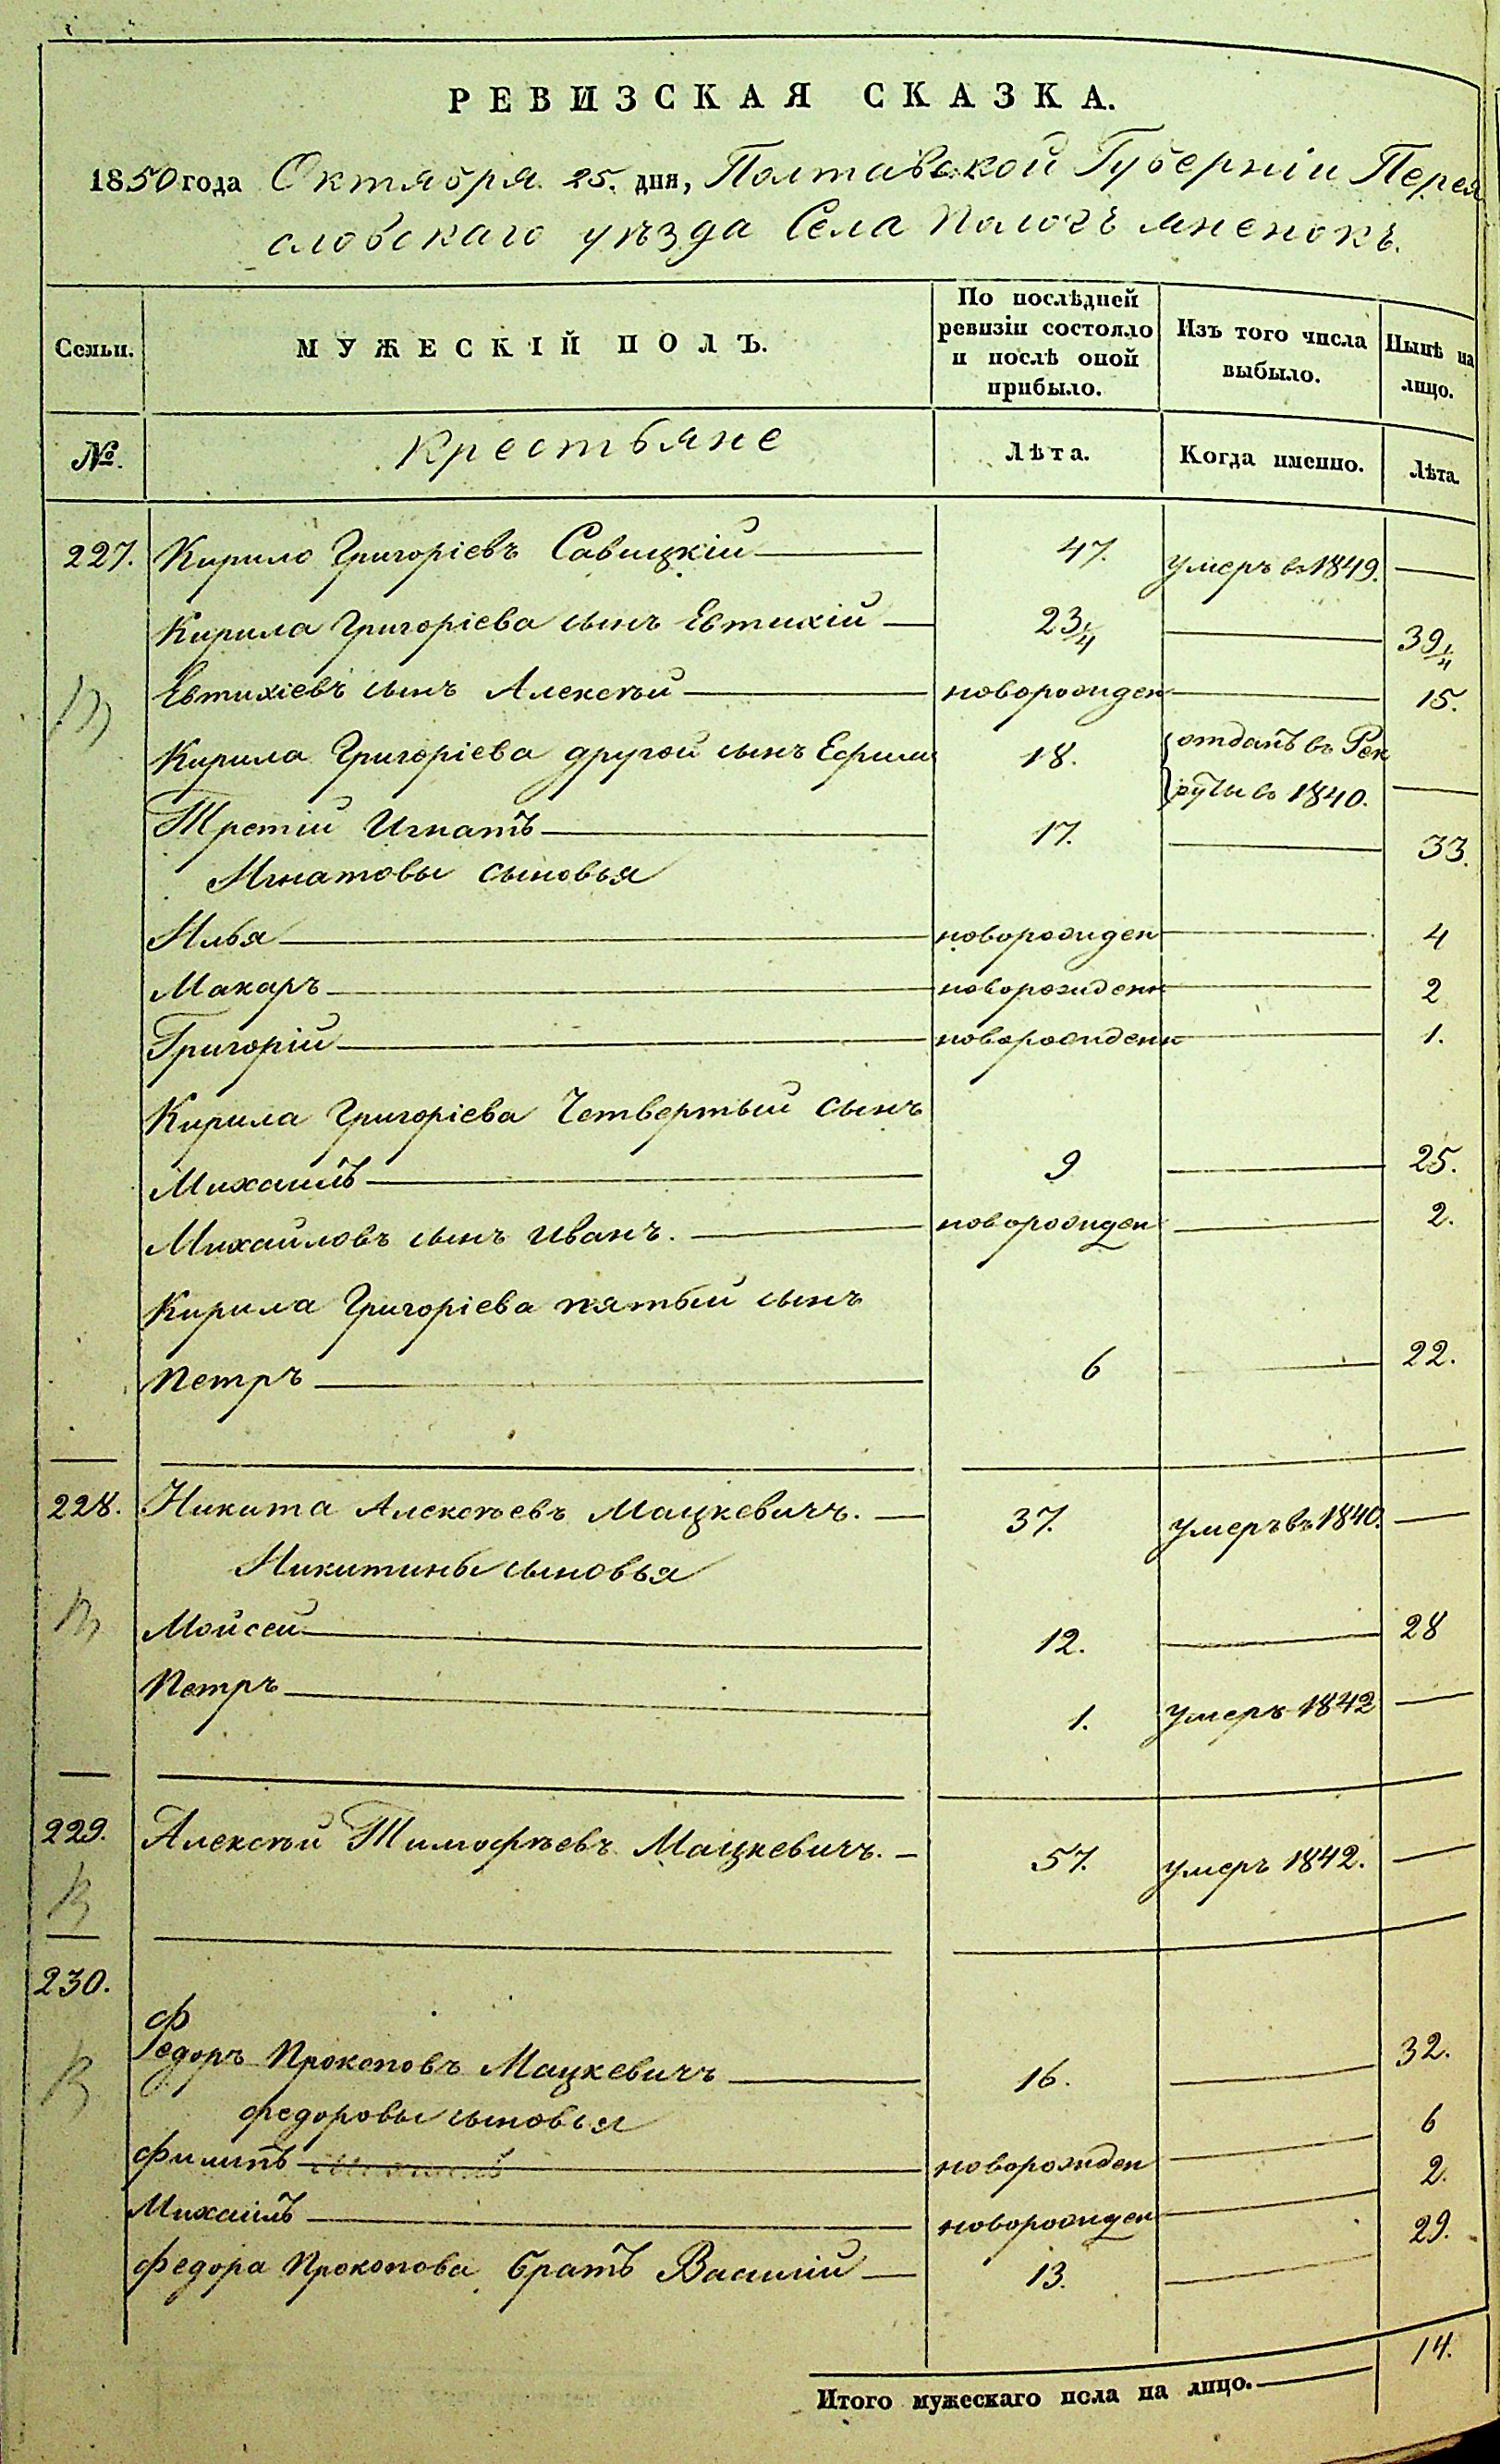 РЕВИЗСКАЯ СКАЗКА.
1850 года Октября 25. дня, Полтавской Губерніи Перея
словскаго уѣзда Села
Семьи. МУЖЕСКІЙ ПОЛЪ. По послѣдней ревизіи состояло и послѣ оной прибыло. Изъ того числа выбыло. Нынѣ на лицо.
№. Крестьяне Лѣта. Когда именно. Лѣта.
227. Кирило Григоріевъ Савицкій 47. умеръ въ 1849.
Кирила Григоріева сынъ Евтихій 23 1/4 39 1/4
Евтихіевъ сынъ Алексѣй новорожден 15.
Кирила Григоріева другой сынъ Ефимъ 18. отданъ въ Рек
руты въ 1840.
Третій Игнатъ 17. 33.
Игнатовы сыновья
Илья новорожден 4
Макаръ новорожденн 2
Григорій новорожденн 1.
Кирила Григоріева Четвертый сынъ
Михаилъ 9 25.
Михайловъ сынъ Иванъ. новорожден 2.
Кирила Григоріева пятый сынъ
Петръ 6 22.
228. Никита Алексѣевъ Мацкевичъ. 37. умеръ въ 1840.
Никитины сыновья
Мойсей 12. 28
Петръ 1. умеръ 1842
229. Алексѣй Тимофѣевъ Мацкевичъ. 57. умеръ 1842.
230.
Федоръ Прокоповъ Мацкевичъ 16. 32.
федоровы сыновья
Филипъ новорожден 6
Михаилъ новорожден 2.
Федора Прокопова братъ Василій 13. 29.
Итого мужескаго пола на лицо. 14.